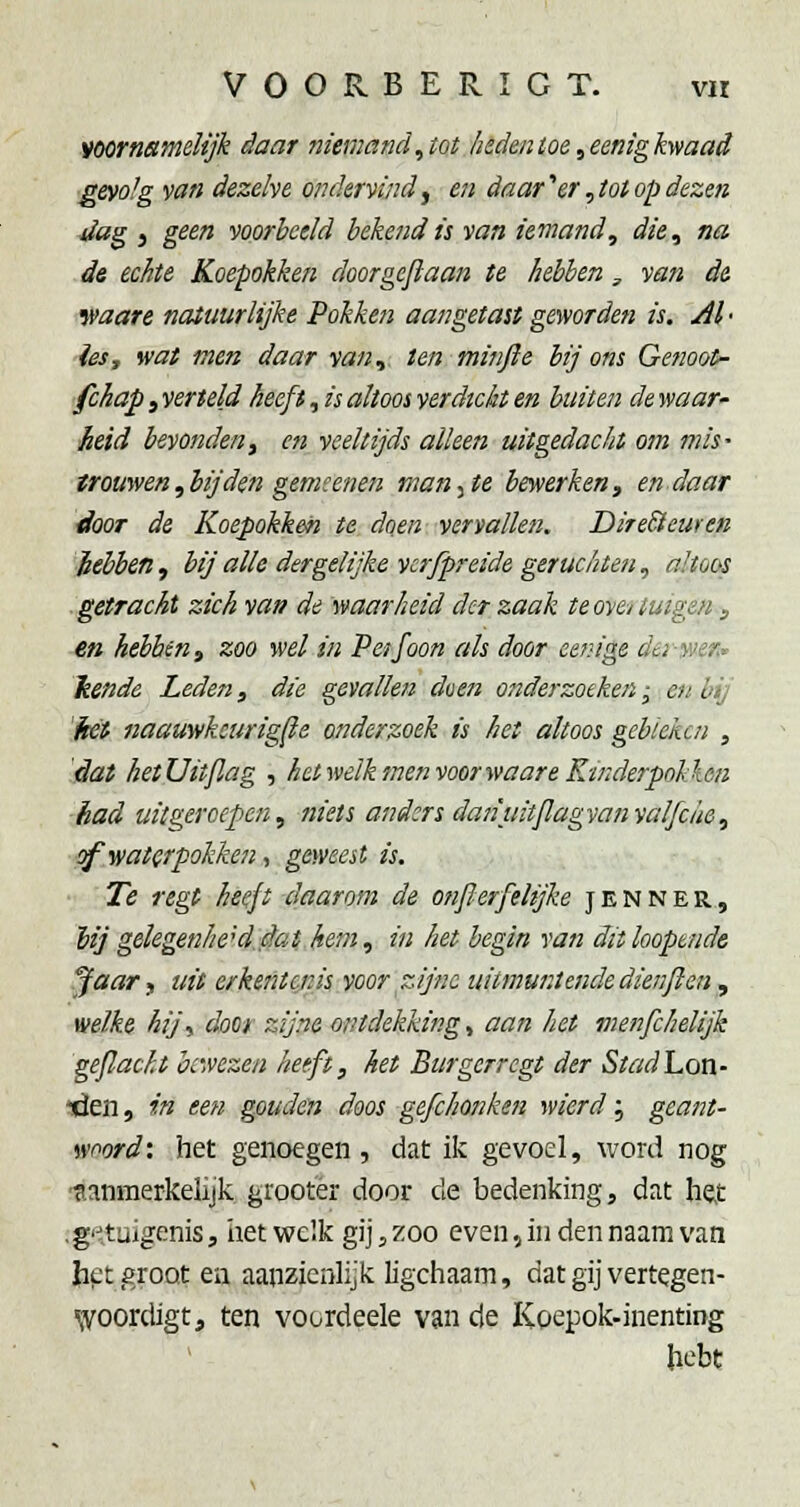 VOORBERIGT. VII
voornamelijk daar niemand, tot heden toe, eenig kwaad
gevolg van dezelve ondervind, en daar'er, tot op dezen
dag, geen voorbeeld bekend is van iemand, die, na
de echte Koepokken doorgeſtaan te hebben, van de
waare natuurlijke Pokken aangetast geworden is. Al-
les, wat men daar van, ten minſte bij ons Genoot-
ſchap, verteld heeft, is altoos verdicht en buiten de waar-
heid bevonden, en veeltijds alleen uitgedacht om mis-
trouwen, bij den gemeenen man, te bewerken, en daar
door de Koepokken te doen vervallen. Directeuren
hebben, bij alle dergelijke verſpreide geruchten, altoos
getracht zich van de waarheid der zaak te overtuigen,
en hebben, zoo wel in Perſoon als door eenige der wer-
kende Leden, die gevallen doen onderzoeken; en bij
het naauwkeurigſte onderzoek is het altoos gebleken,
dat het Uitſlag, het welk men voor waare Kinderpokken
had uitgeroepen, niets anders dan uitſlag van valſche,
of waterpokken, geweest is.
Te regt heeft daarom de onſterfelijke JENNER,
bij gelegenheid dat hem, in het begin van dit loopende
Jaar, uit erkentenis voor zijne uitmuntende dienſten,
welke hij, door zijne ontdekking, aan het menſchelijk
geſlacht bewezen heeft, het Burgerregt der Stad Lon-
den, in een gouden doos geſchonken wierd; geant-
woord: het genoegen, dat ik gevoel, word nog
aanmerkelijk grooter door de bedenking, dat het
getuigenis, het welk gij, zoo even, in den naam van
het groot en aanzienlijk ligchaam, dat gij vertegen-
woordigt, ten voordeele van de Koepok-inenting
hebt